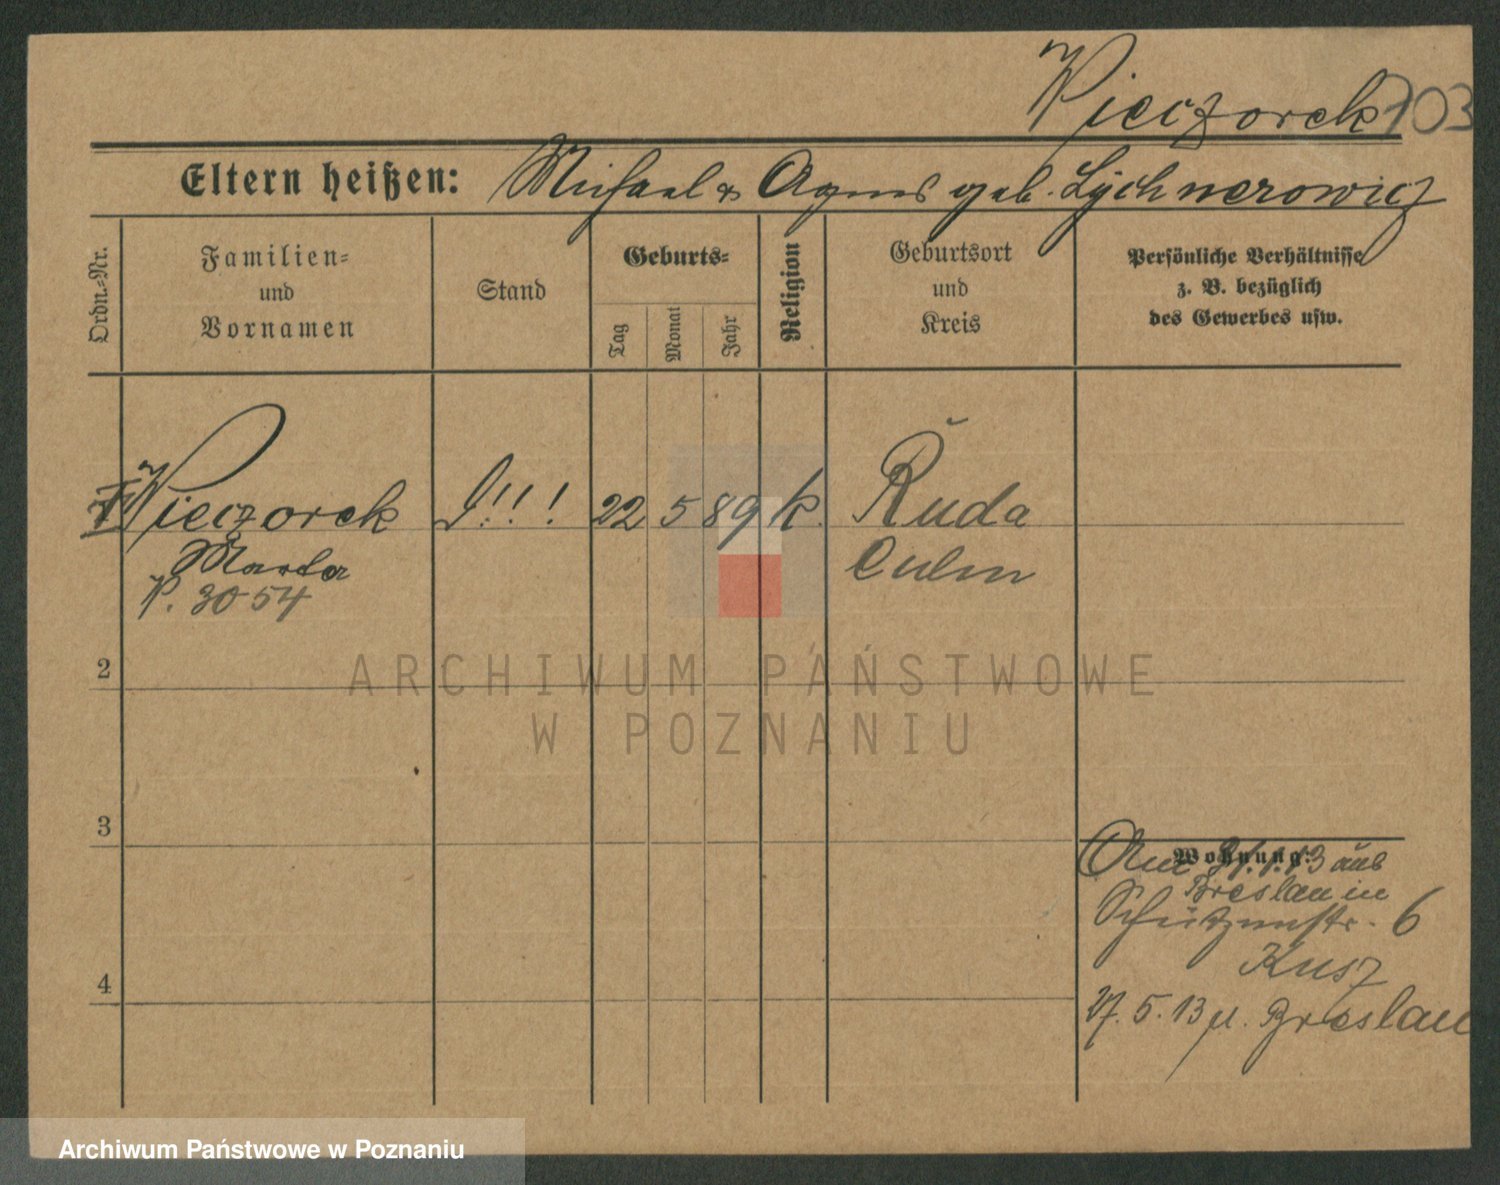 Wieczorek 703
Eltern heißen: Michael & Agnes geb. Lychnerowicz
Ordn.-Nr.
Familien-
und
Vornamen
Stand
Geburts-
Tag
Monat
Jahr
Religion
Geburtsort
und
Kreis
Persönliche Verhältnisse
z. B. bezüglich
des Gewerbes usw.
Wieczorek !!! 22 5 89 k. Ruda
Marta Culm
P. 3054
2
ARCHIWUM PAŃSTWOWE
W POZNANIU
3
Wohnung:
1.13 aus
Breslau in
Schützenstr. 6
Kusz
27.5.13 n. Breslau
4
Archiwum Państwowe w Poznaniu